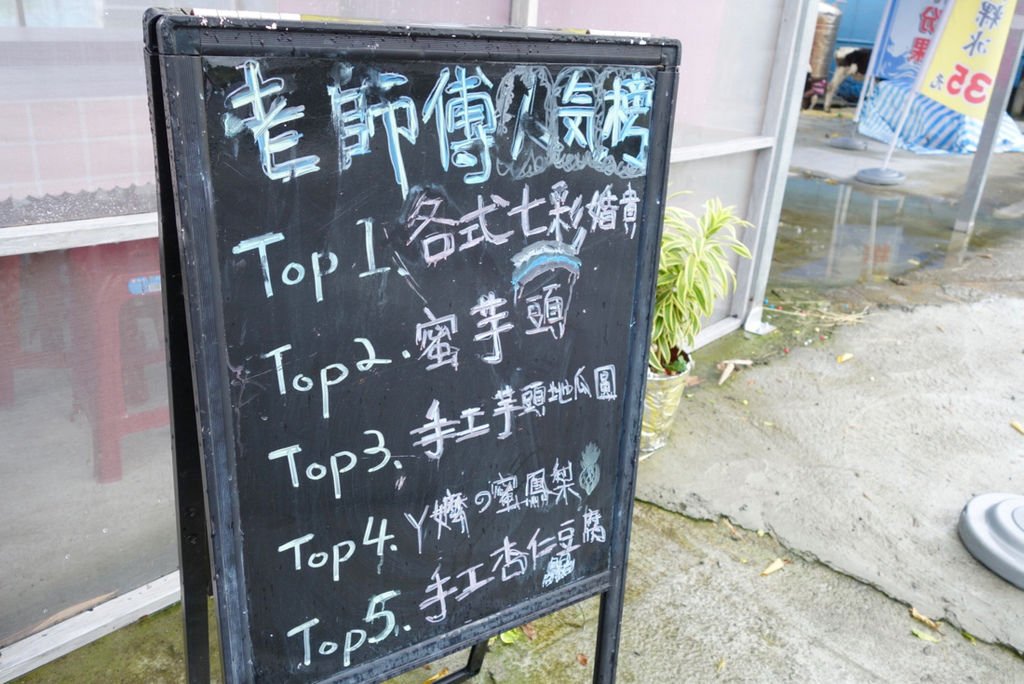 老師傅人氣榜
Top 1. 各式七彩婚賣
Top 2. 蜜芋頭
Top 3. 手工芋頭地瓜圓
Top 4. ㄚ嬤の蜜鳳梨
Top 5. 手工杏仁豆腐
粿冰
35元
粉粿